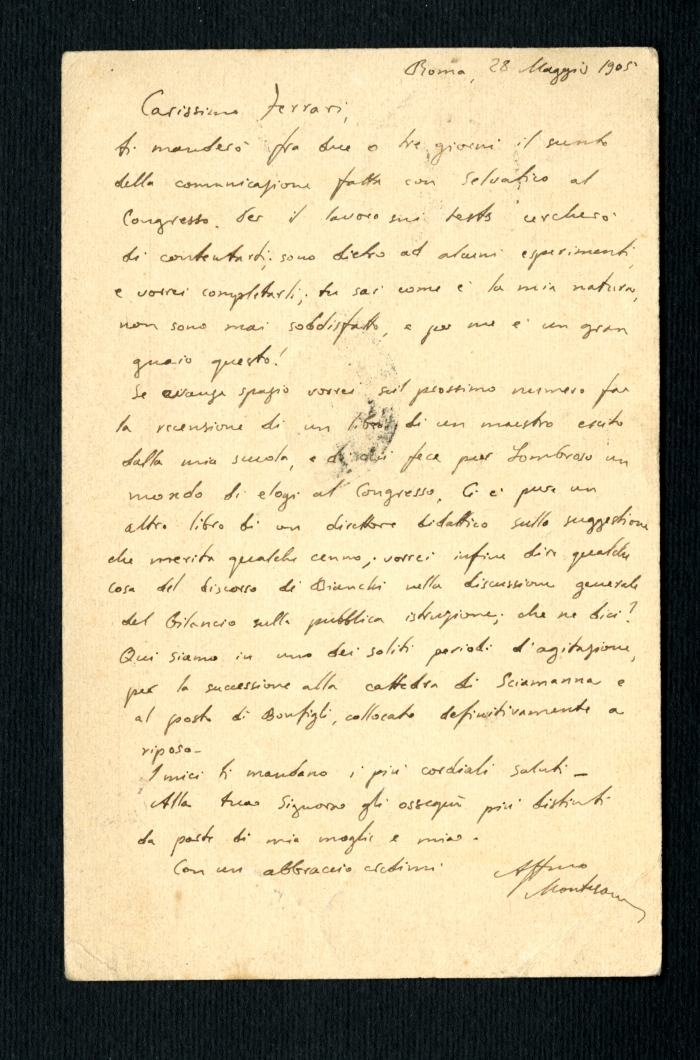 Roma, 28 Maggio 1905
Carissimo Ferrari,
ti manderò fra due o tre giorni il sunto
della comunicazione fatta con Selvatico al
Congresso. Per il lavoro sui tests cercherò
di contentarti; sono dietro ad alcuni esperimenti,
e vorrei completarli; tu sai come è la mia natura,
non sono mai soddisfatto, e per me è un gran
guaio questo!
Se avanza spazio vorrei sul prossimo numero far
la recensione di un libro di un maestro escito
dalla mia scuola, e di cui fece pur Lombroso un
mondo di elogi al Congresso. Ci è pure un
altro libro di un direttore didattico sulla suggestione
che merita qualche cenno; vorrei infine dire qualche
cosa del discorso di Bianchi nella discussione generale
del Bilancio sulla pubblica istruzione; che ne dici?
Qui siamo in uno dei soliti periodi d'agitazione,
per la successione alla cattedra di Sciamanna e
al posto di Bonfigli, collocato definitivamente a
riposo -
I miei ti mandano i più cordiali saluti -
Alla tua Signora gli ossequii più distinti
da parte di mia moglie e mia -
Con un abbraccio credimi
Aff.mo
Montesano